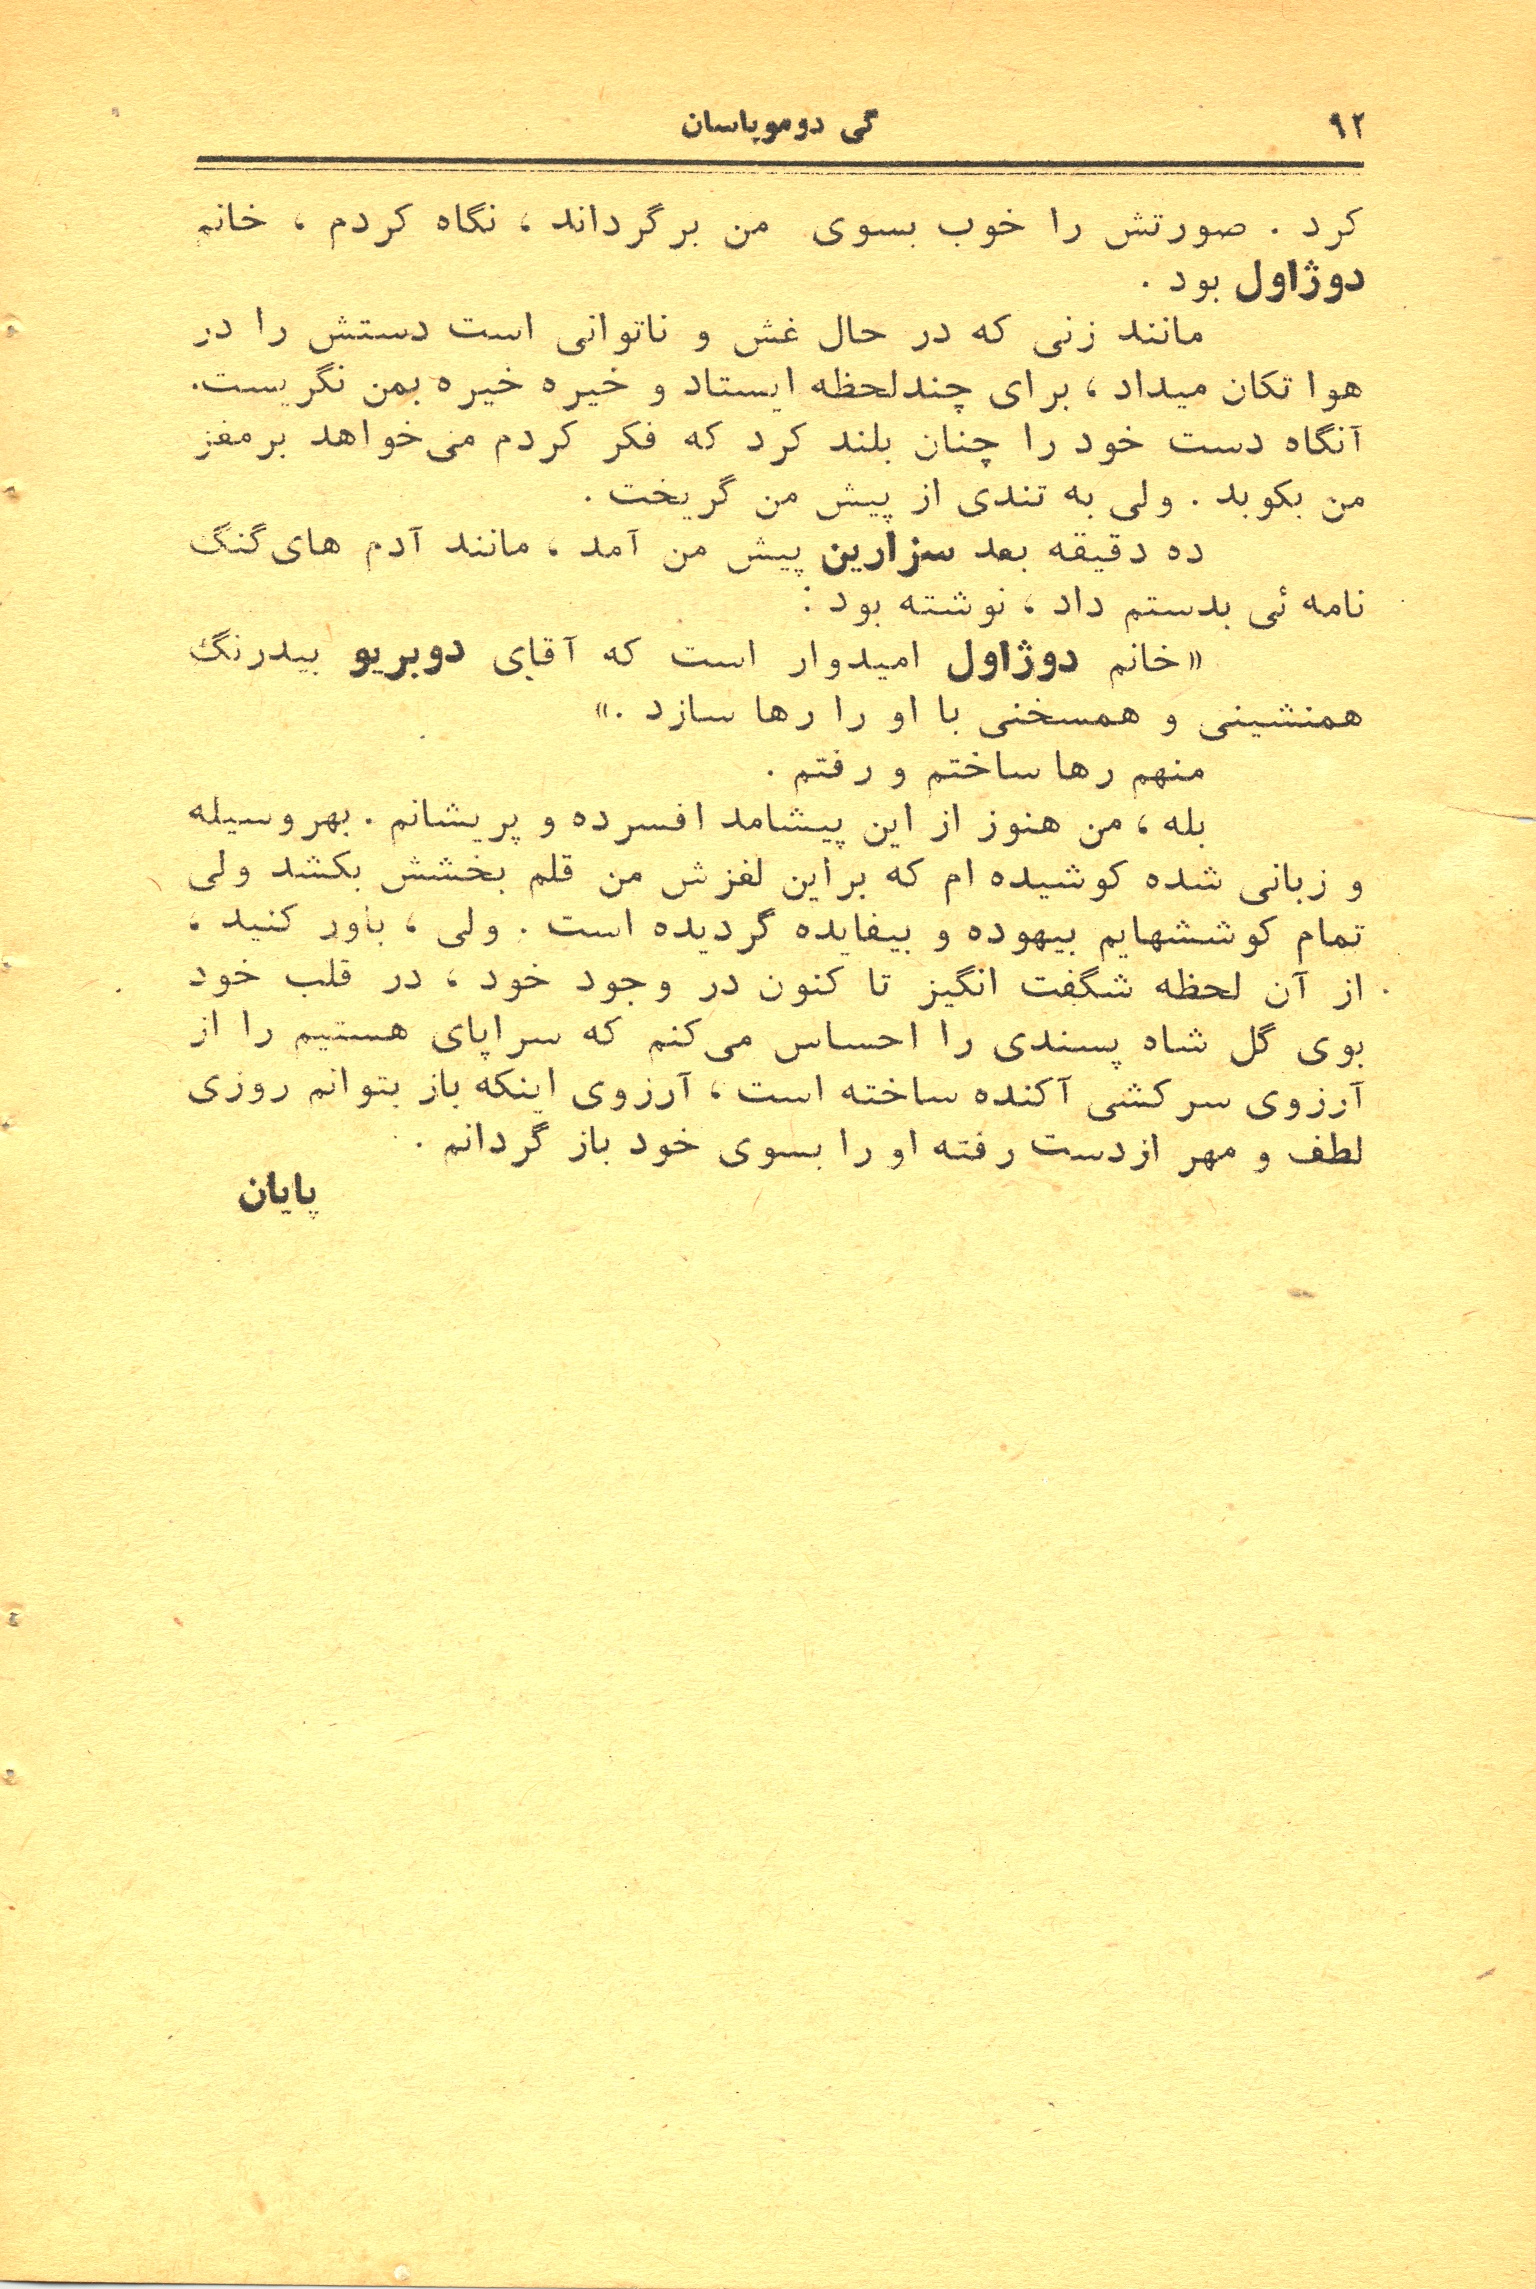 ۹۲
گی دوموپاسان
کرد . صورتش را خوب بسوی من برگرداند ، نگاه کردم ، خانم
دوژاول بود .
مانند زنی که در حال غش و ناتوانی است دستش را در
هوا تکان میداد ، برای چندلحظه ایستاد و خیره خیره بمن نگریست.
آنگاه دست خود را چنان بلند کرد که فکر کردم می‌خواهد برمغز
من بکوبد . ولی به تندی از پیش من گریخت .
ده دقیقه بعد سزارین پیش من آمد ، مانند آدم های گنگ
نامه ئی بدستم داد ، نوشته بود :
«خانم دوژاول امیدوار است که آقای دوبریو بیدرنگ
همنشینی و همسخنی با او را رها سازد .»
منهم رها ساختم و رفتم .
بله ، من هنوز از این پیشامد افسرده و پریشانم . بهروسیله
و زبانی شده کوشیده ام که براین لغزش من قلم بخشش بکشد ولی
تمام کوششهایم بیهوده و بیفایده گردیده است . ولی ، باور کنید ،
از آن لحظه شگفت انگیز تا کنون در وجود خود ، در قلب خود
بوی گل شاه پسندی را احساس می‌کنم که سراپای هستیم را از
آرزوی سرکشی آکنده ساخته است ، آرزوی اینکه باز بتوانم روزی
لطف و مهر ازدست رفته او را بسوی خود باز گردانم .
پایان